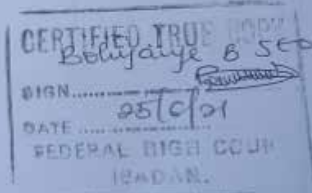 CERTIFIED TRUE COPY
B SEO
SIGN............
DATE 25/6/21
FEDERAL HIGH COURT
IBADAN.